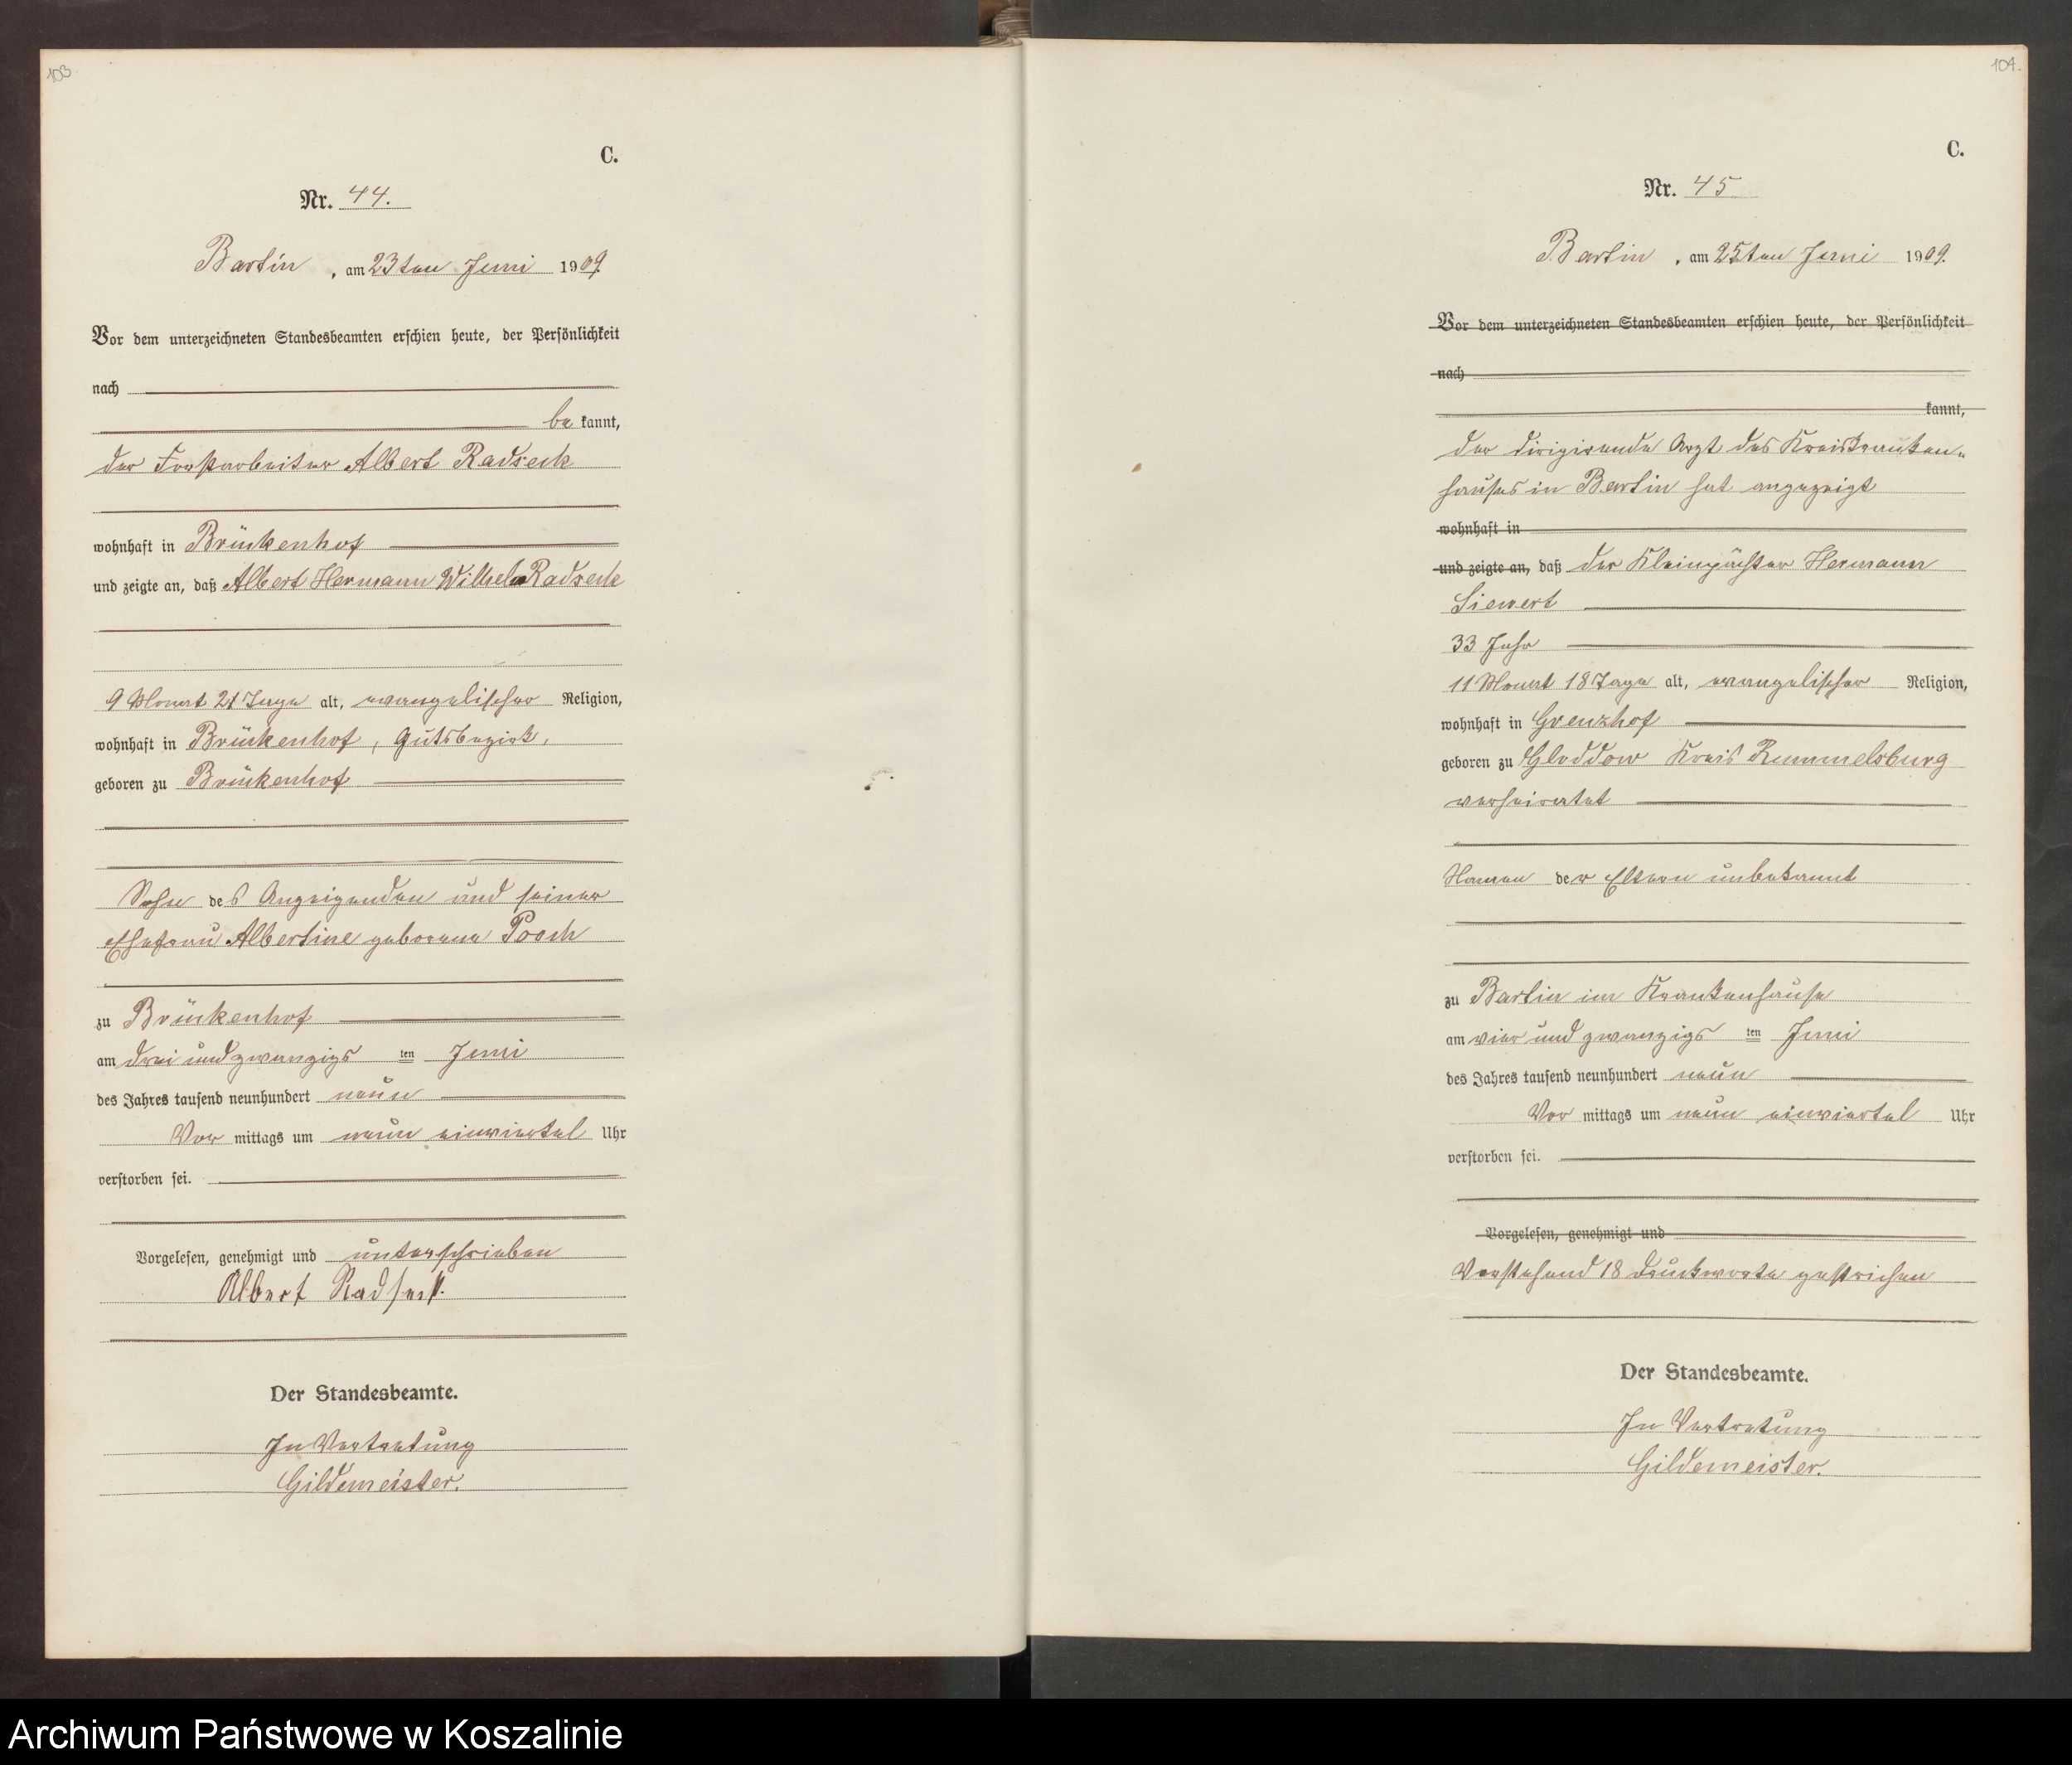 103
C.
Nr. 44.
Bartin, am 23ten Juni 1909.
Vor dem unterzeichneten Standesbeamten erschien heute, der Persönlichkeit
nach
be kannt,
der Forstarbeiter Albert Radseck
wohnhaft in Brückenhof
und zeigte an, daß Albert Hermann Wilhelm Radseck
9 Monat 21 Tage alt, evangelischer Religion,
wohnhaft in Brückenhof, Gutsbezirk,
geboren zu Brückenhof
Sohn des Anzeigenden und seiner
Ehefrau Albertine geborene Pooch
zu Brückenhof
am drei und zwanzigs ten Juni
des Jahres tausend neunhundert neun
Vor mittags um neun einviertel Uhr
verstorben sei.
Vorgelesen, genehmigt und unterschrieben
Albert Radseck.
Der Standesbeamte.
In Vertretung
Gildemeister.
104.
C.
Nr. 45
Bartin, am 25ten Juni 1909.
Vor dem unterzeichneten Standesbeamten erschien heute, der Persönlichkeit
nach
kannt,
der dirigirende Arzt des Kreiskranken-
hauses in Bartin hat angezeigt
wohnhaft in
und zeigte an, daß der Kleinpächter Hermann
Siewert
33 Jahr
11 Monat 18 Tage alt, evangelischer Religion,
wohnhaft in Grenzhof
geboren zu Gloddow Kreis Rummelsburg
verheiratet
Namen der Eltern unbekannt
zu Bartin im Krankenhause
am vier und zwanzigs ten Juni
des Jahres tausend neunhundert neun
Vor mittags um neun einviertel Uhr
verstorben sei.
Vorgelesen, genehmigt und
Vorstehend 18 Druckworte gestrichen
Der Standesbeamte.
In Vertretung
Gildemeister.
Archiwum Państwowe w Koszalinie